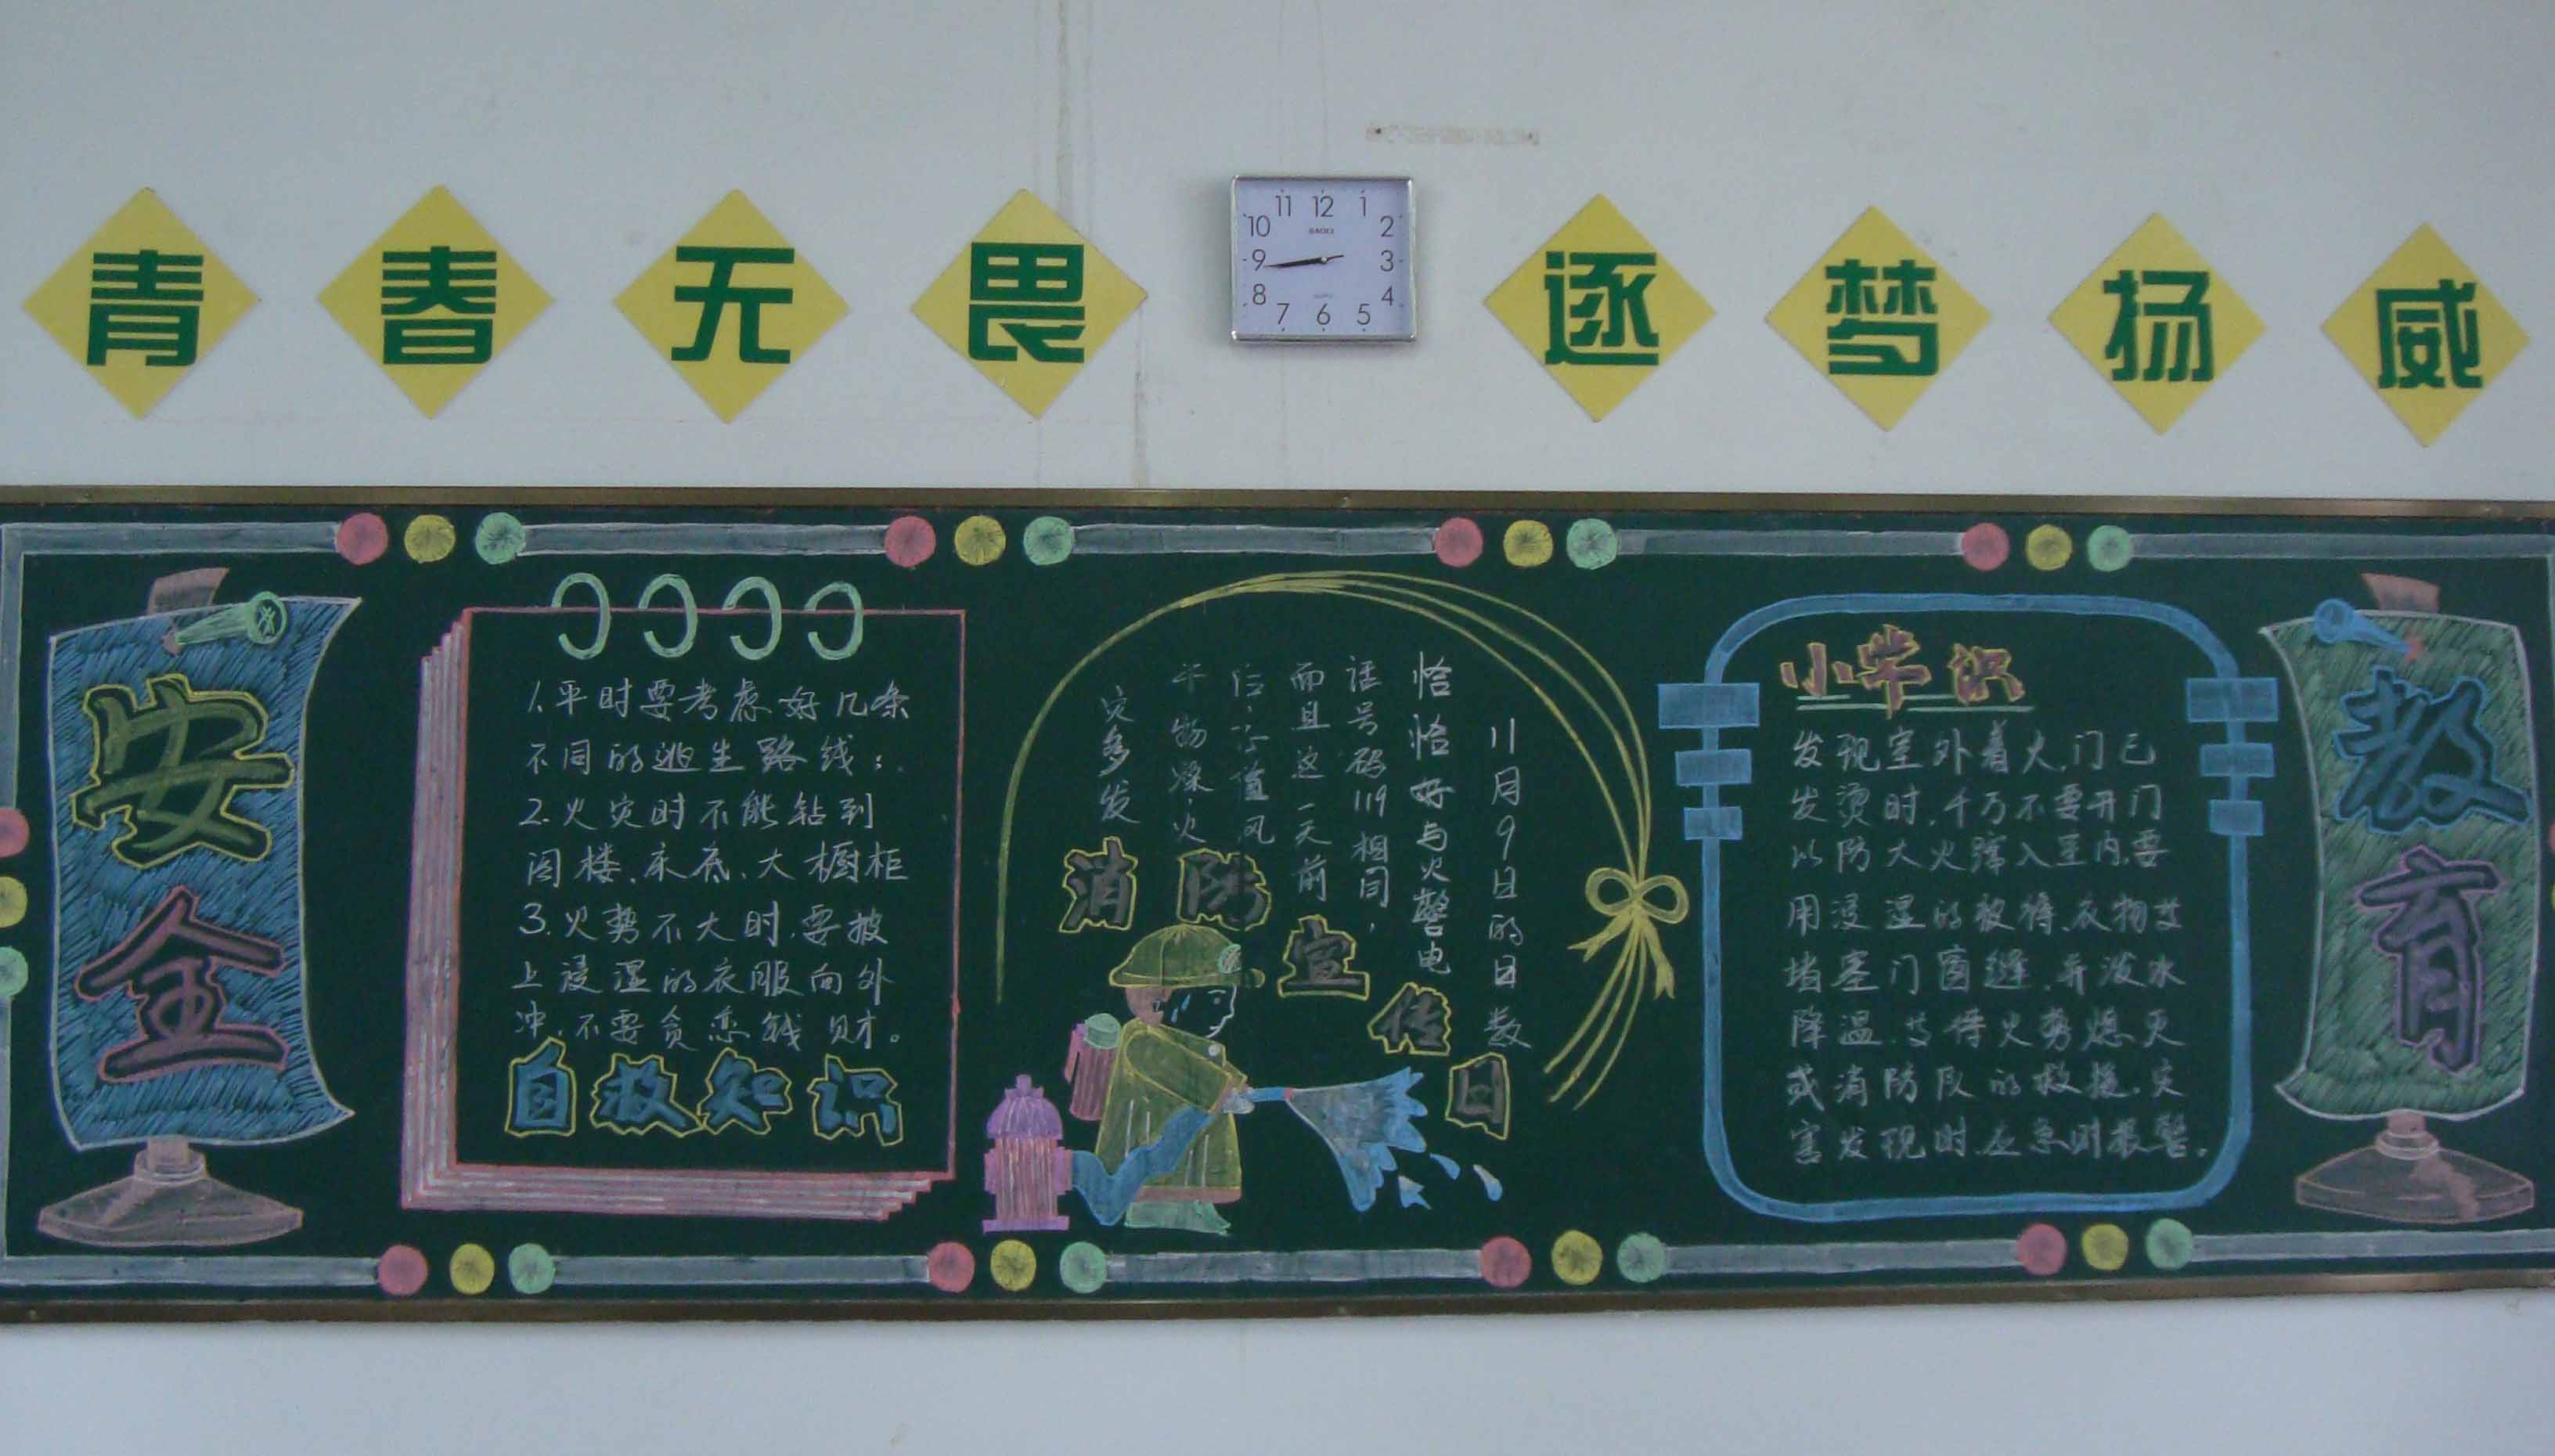 青春无畏
逐梦扬威
11 12 1
10 2
9 3
8 4
7 6 5
安全
1.平时要考虑好几条
不同的逃生路线;
2.火灾时不能钻到
阁楼、床底、大橱柜
3.火势不大时,要披
上浸湿的衣服向外
冲,不要贪恋钱财。
自救知识
11月9日的日数
恰恰好与火警电
话号码119相同,
而且这一天前
后,正值风
干物燥,火
灾多发
消防宣传日
小常识
发现室外着火,门已
发烫时,千万不要开门
以防大火蹿入室内,要
用浸湿的被褥、衣物等
堵塞门窗缝,并泼水
降温,等待火势熄灭
或消防队的救援,灾
害发现时,应急时报警。
教育